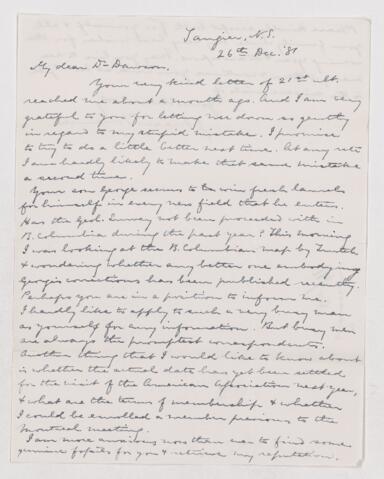 Tangier, N.S.
26th Dec. '81
My dear Dr Dawson.
Your very kind letter of 21st ult.
reached me about a month ago. And I am very
grateful to you for letting me down so gently
in regard to my stupid mistake. I promise
to try to do a little better next time. At any rate
I am hardly likely to make that same mistake
a second time.
Your son George seems to win fresh laurels
for himself in every new field that he enters.
Has the Geol. Survey not been proceeded with in
B. Columbia during the past year? This morning
I was looking at the B. Columbian map by
& wondering whether any better one embodying
George's corrections has been published recently.
Perhaps you are in a position to inform me.
I hardly like to apply to such a very busy man
as yourself for any information. But busy men
are always the promptest correspondents.
Another thing that I would like to know about
is whether the actual date has yet been settled
for the visit of the American Association next year,
& what are the terms of membership & whether
I could be enrolled a member previous to the
Montreal meeting.
I am more anxious now than ever to find some
genuine fossils for you & retrieve my reputation.